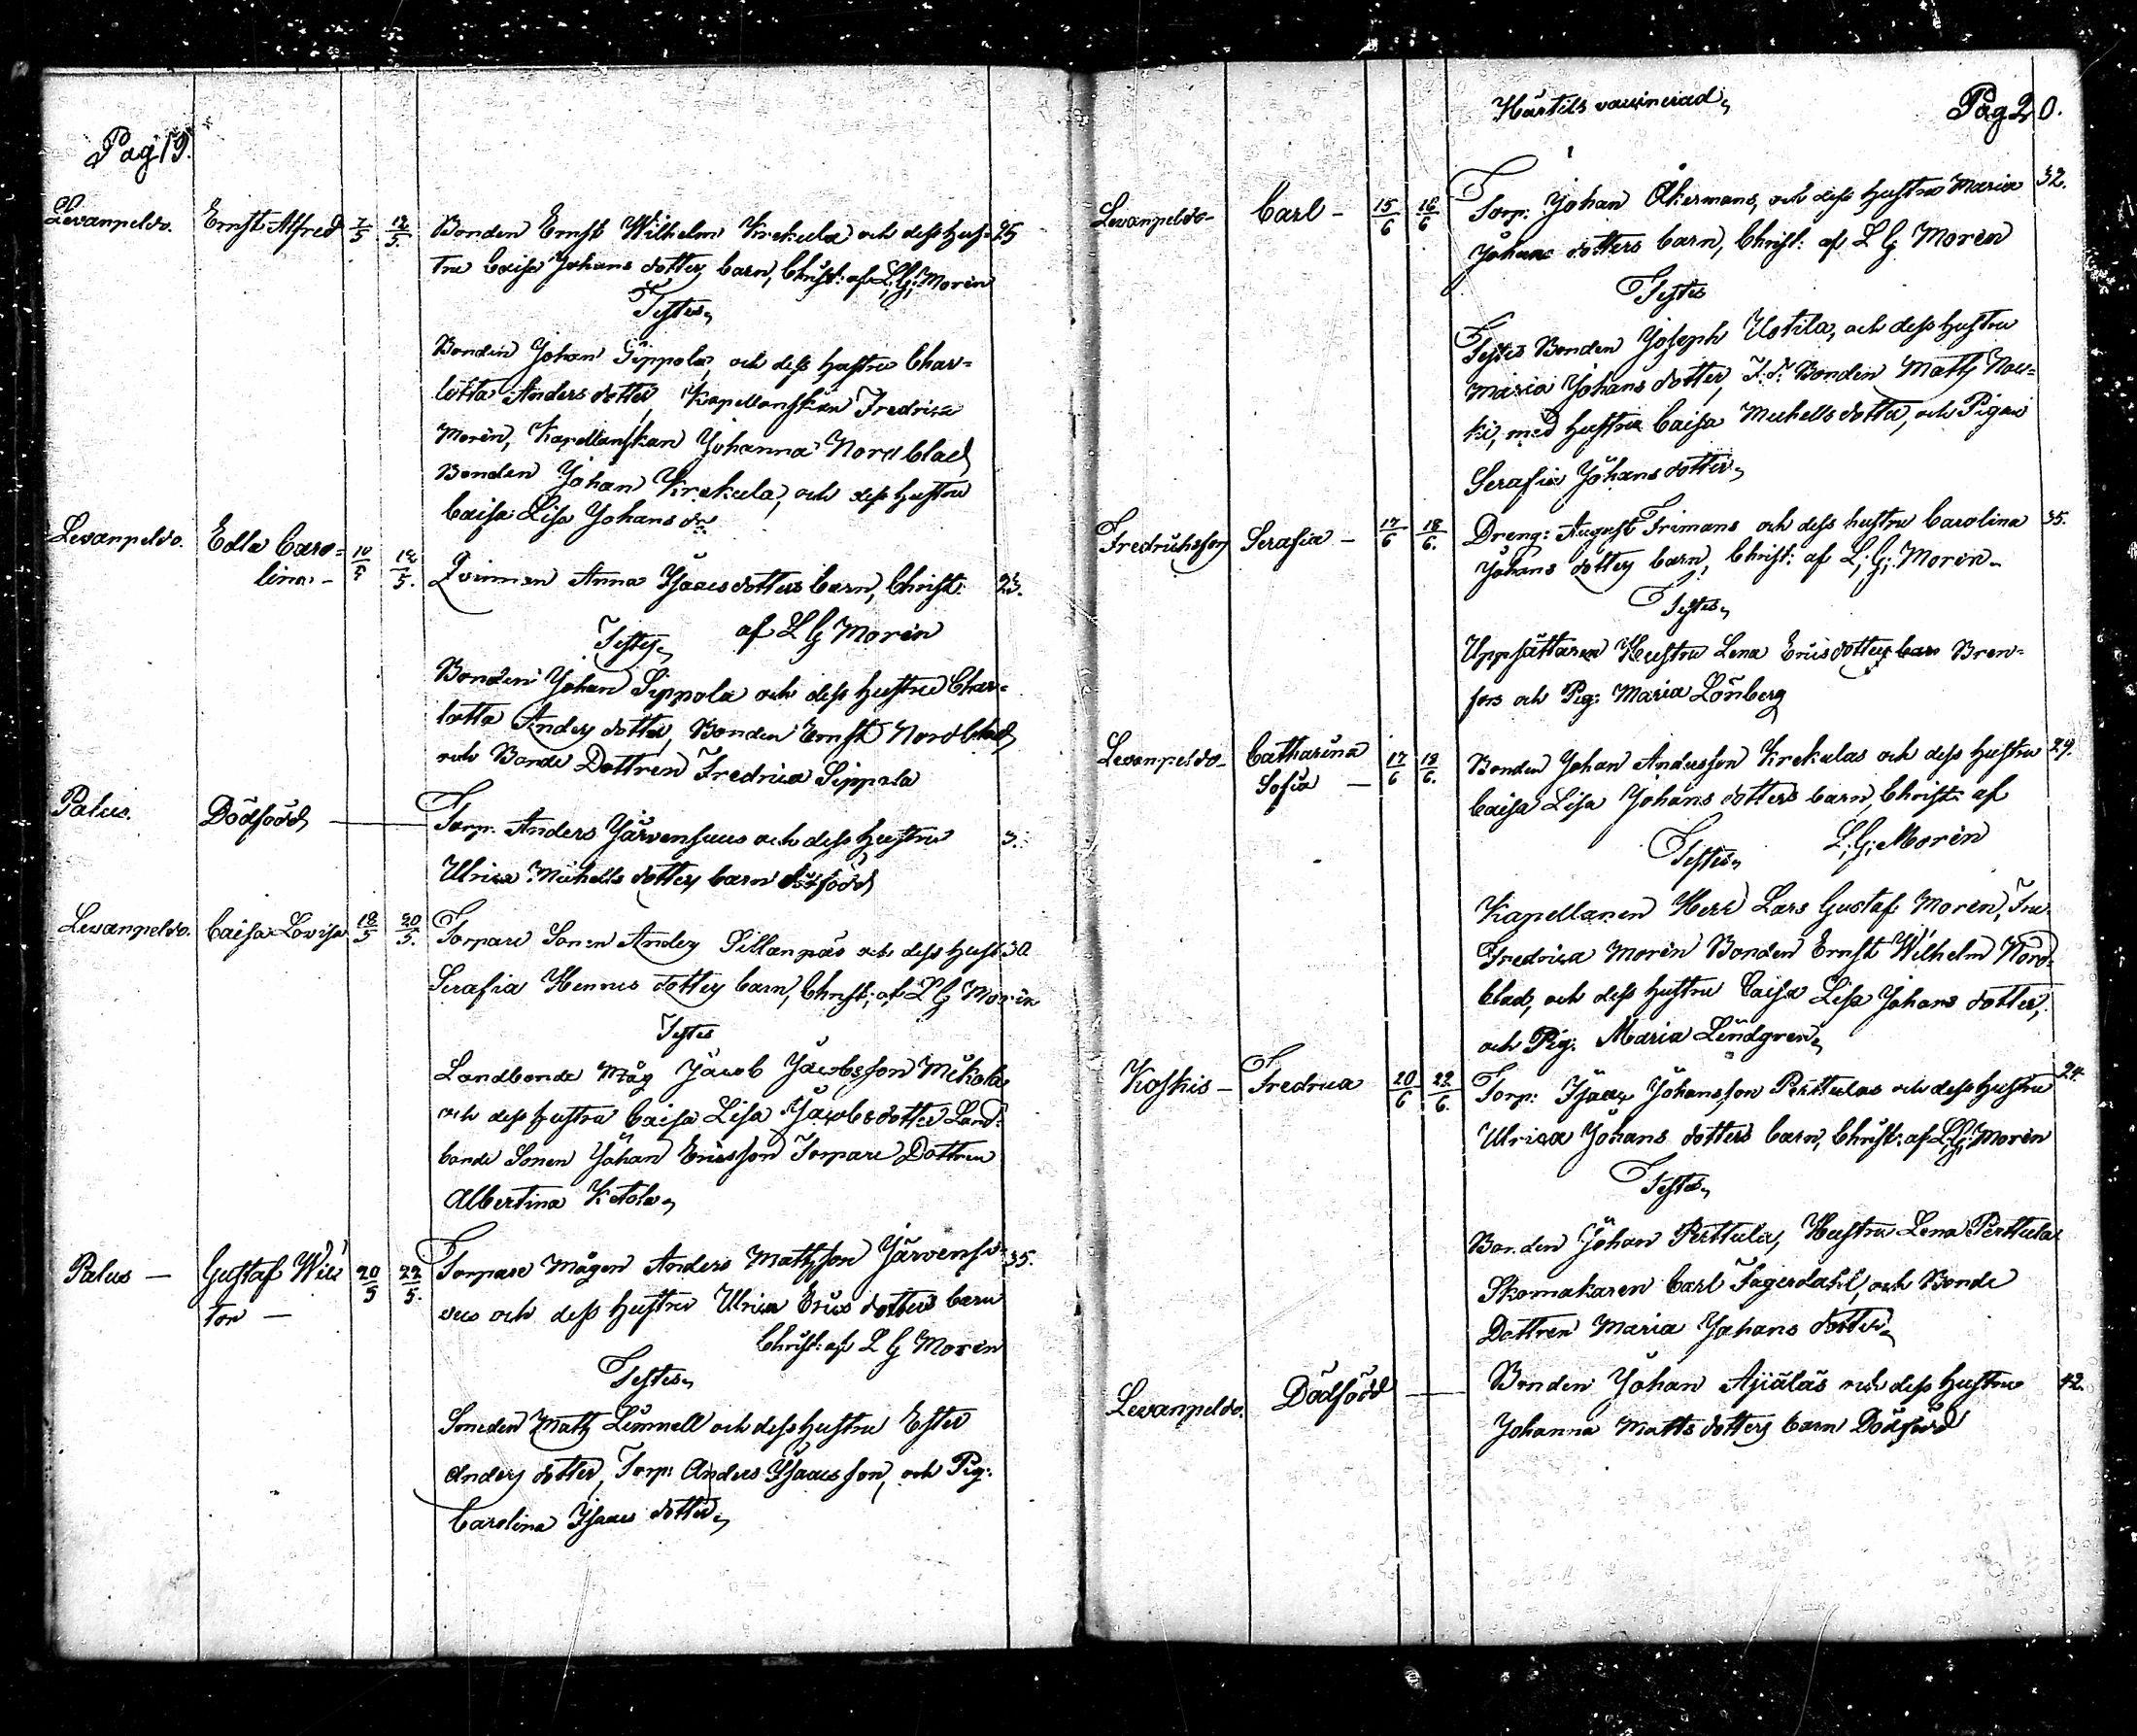 Pag 19.
Levanpeldo. Ernst Alfred 7/5 12/5. Bonden Ernst Wilhelm Krekula och dess Hus- 25
tru Caisa Johans dotters barn, Christ: af L: G: Morén
Testes,
Bonden Johan Sippola, och dess hustru Char=
lotta Anders dotter, Kapellanskan Fredrica
Morén, Kapellanskan Johanna Nordblad
Bonden Johan Krekula, och dess hustru
Caisa Lisa Johans dr
Levanpeldo. Edla Caro= 10/5 12/5. Qvinnan Anna Isaacs dotters barn, Christ: 23.
lina - af L G Morén
Testes,
Bonden Johan Sippola och dess hustru Char=
lotta Anders dotter, Bonden Ernst Nordblad,
och Bonde Dottren Fredrica Sippola
Palus. Dödfödd — Torp. Anders Järvensuus och dess hustru 3.
Ulrica Michells dotters barn dödfödd
Levanpeldo. Caisa Lovisa 18/5 20/5. Torpare Sonen Anders Sillanpäs och dess Hust 30
Serafia Henrics dotters barn, Christ: af L G Morén
Testes
Landbonde Måg Jacob Jacobsson Mikola,
och dess hustru Caisa Lisa Jacobs dotter Land=
bonde Sonen Johan Ericsson Torpare Dottren
Albertina Ketola,
Palus — Gustaf Wic 20/5 22/5. Torpare Mågen Anders Mathsson Järvensi= 35.
tor — uus och dess hustru Ulrica Erics dotters barn
Christ: af L G Morén
Testes,
Smeden Math Limnell och dess hustru Ester
Anders dotter, Torp: Anders Isaacsson, och Pig:
Carolina Isaacs dotter,
Härtils vaccinerad, Pag 20.
Levanpeldo - Carl - 15/6 16/6 Torp: Johan Åkermans, och dess hustru Maria 32.
Johans dotters barn, Christ: af L G Morén
Testes
Testes Bonden Joseph Uotila, och dess hustru
Maria Johans dotter, F. d. Bonden Matts Nou=
ki, med hustru Caisa Michells dotter, och Pigan
Serafia Johans dotter,
Fredrichsfors Serafia - 17/6 18/6. Dreng: August Frimans och dess hustru Carolina 35.
Johans dotters barn, Christ: af L: G: Morén.
Testes,
Uppsättaren Hustru Lena Erics dotter Bren=
fors och Pig: Maria Lönberg
Levanpeldo - Catharina 17/6 18/6. Bonden Johan Andersson Krekulas och dess hustru 29.
Sofia — Caisa Lisa Johans dotters barn, Christ: af
Testes, L: G: Morén
Kapellanen Herr Lars Gustaf Morén, Fru
Fredrica Morén Bonden Ernst Wilhelm Nord=
blad, och dess hustru Caisa Lisa Johans dotter,
och Pig: Maria Lindgren,
Koskis - Fredrica 20/6 22/6. Torp: Isaac Johansson Perttulas och dess hustru 24.
Ulrica Johans dotters barn, Christ: af L: G: Morén
Testes,
Bonden Johan Perttula, Hustru Lena Perttula
Skomakaren Carl Fagerdahl, och Bonde
Dottren Maria Johans dotter,
Levanpeldo. Dödfödd — Bonden Johan Ajiäläs och dess hustru 42.
Johanna Matts dotters barn Dödfödd